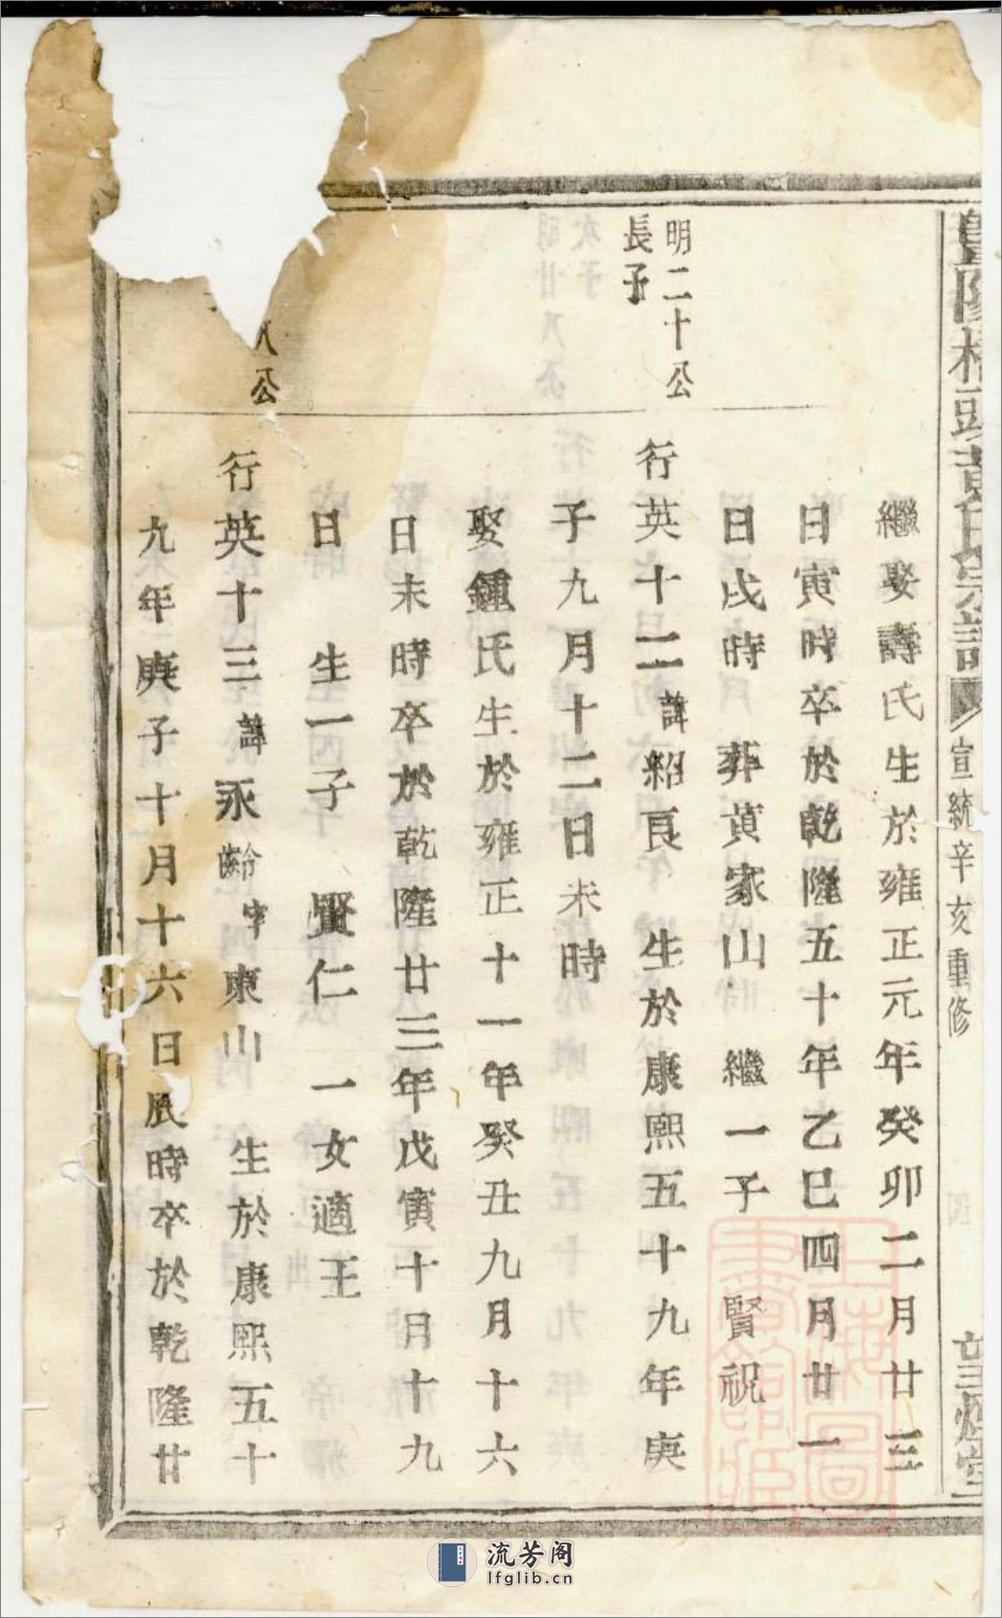 暨陽橋頭黃氏宗譜 宣統辛亥重修
繼娶壽氏生於雍正元年癸卯二月廿三
日寅時卒於乾隆五十年乙巳四月廿一
日戌時 葬黄家山 繼一子 賢祝
明二十公
長子
行英十二諱紹良 生於康熙五十九年庚
子九月十二日未時
娶鍾氏生於雍正十一年癸丑九月十六
日未時卒於乾隆廿三年戊寅十月十九
日 生一子 賢仁 一女適王
八公
行英十三諱永齡字東山 生於康熙五十
九年庚子十月十六日辰時卒於乾隆廿
流芳阁
lfglib.cn